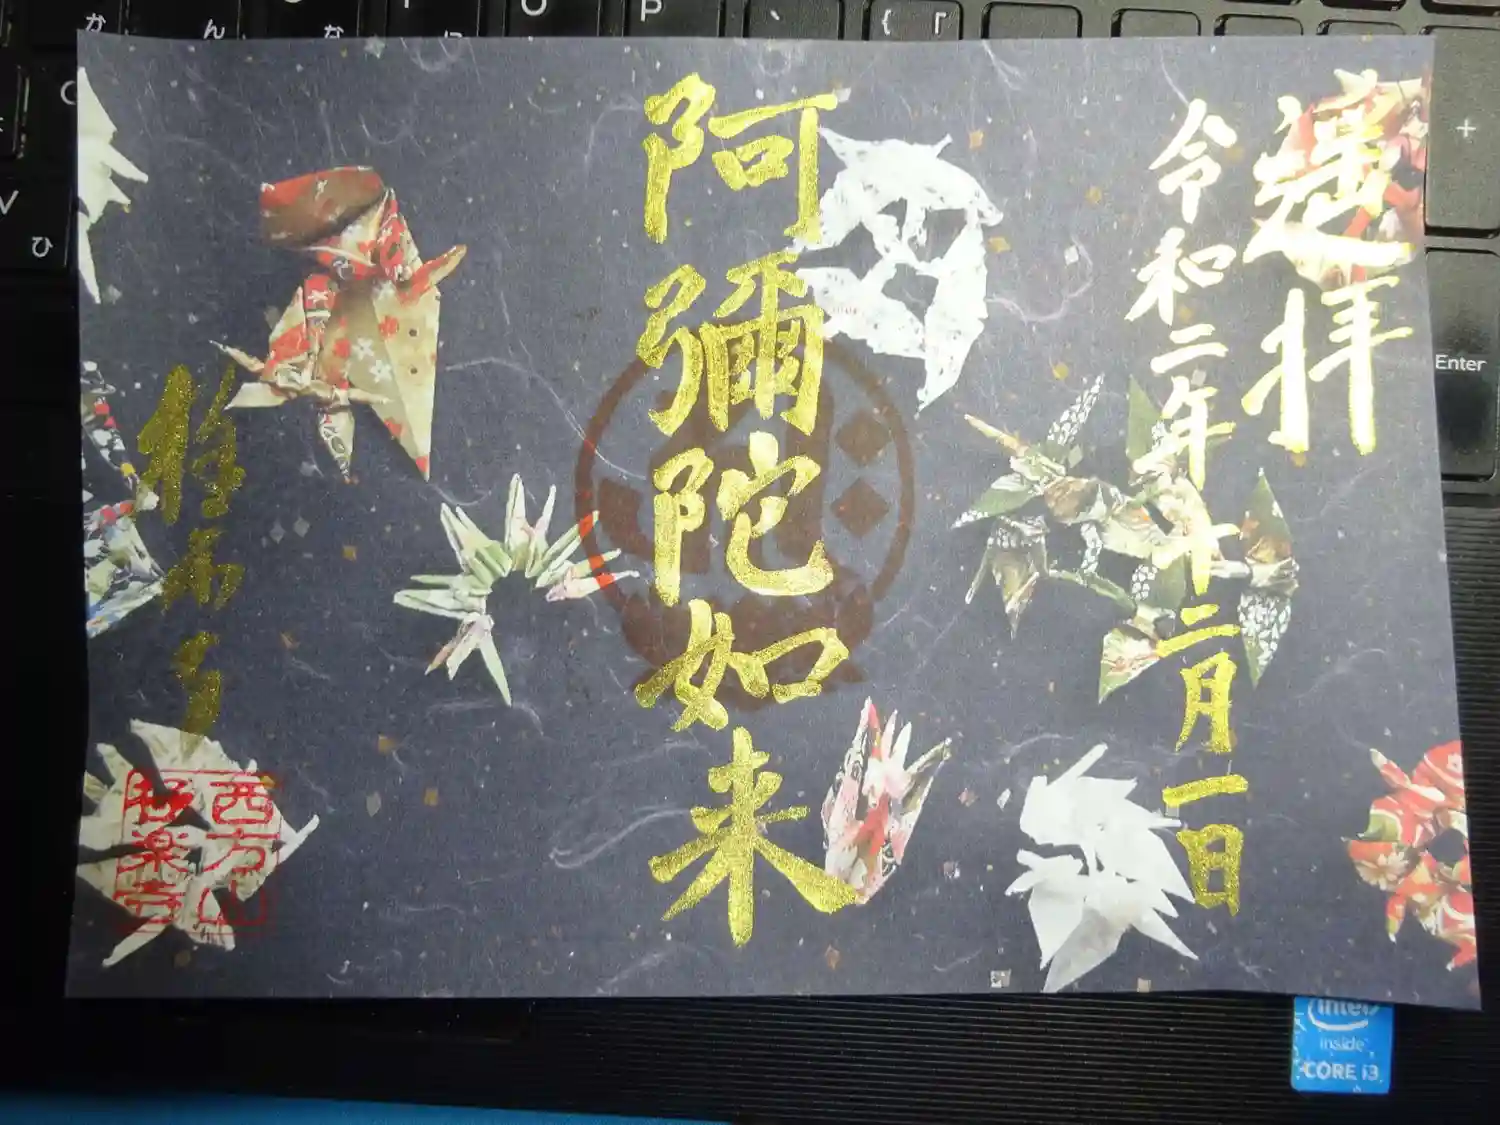 か ん な に O P 、 { 「
V ひ
+
Enter
遥拝
令和二年十二月一日
阿彌陀如来
西方山
極楽寺
intel
inside
CORE i3